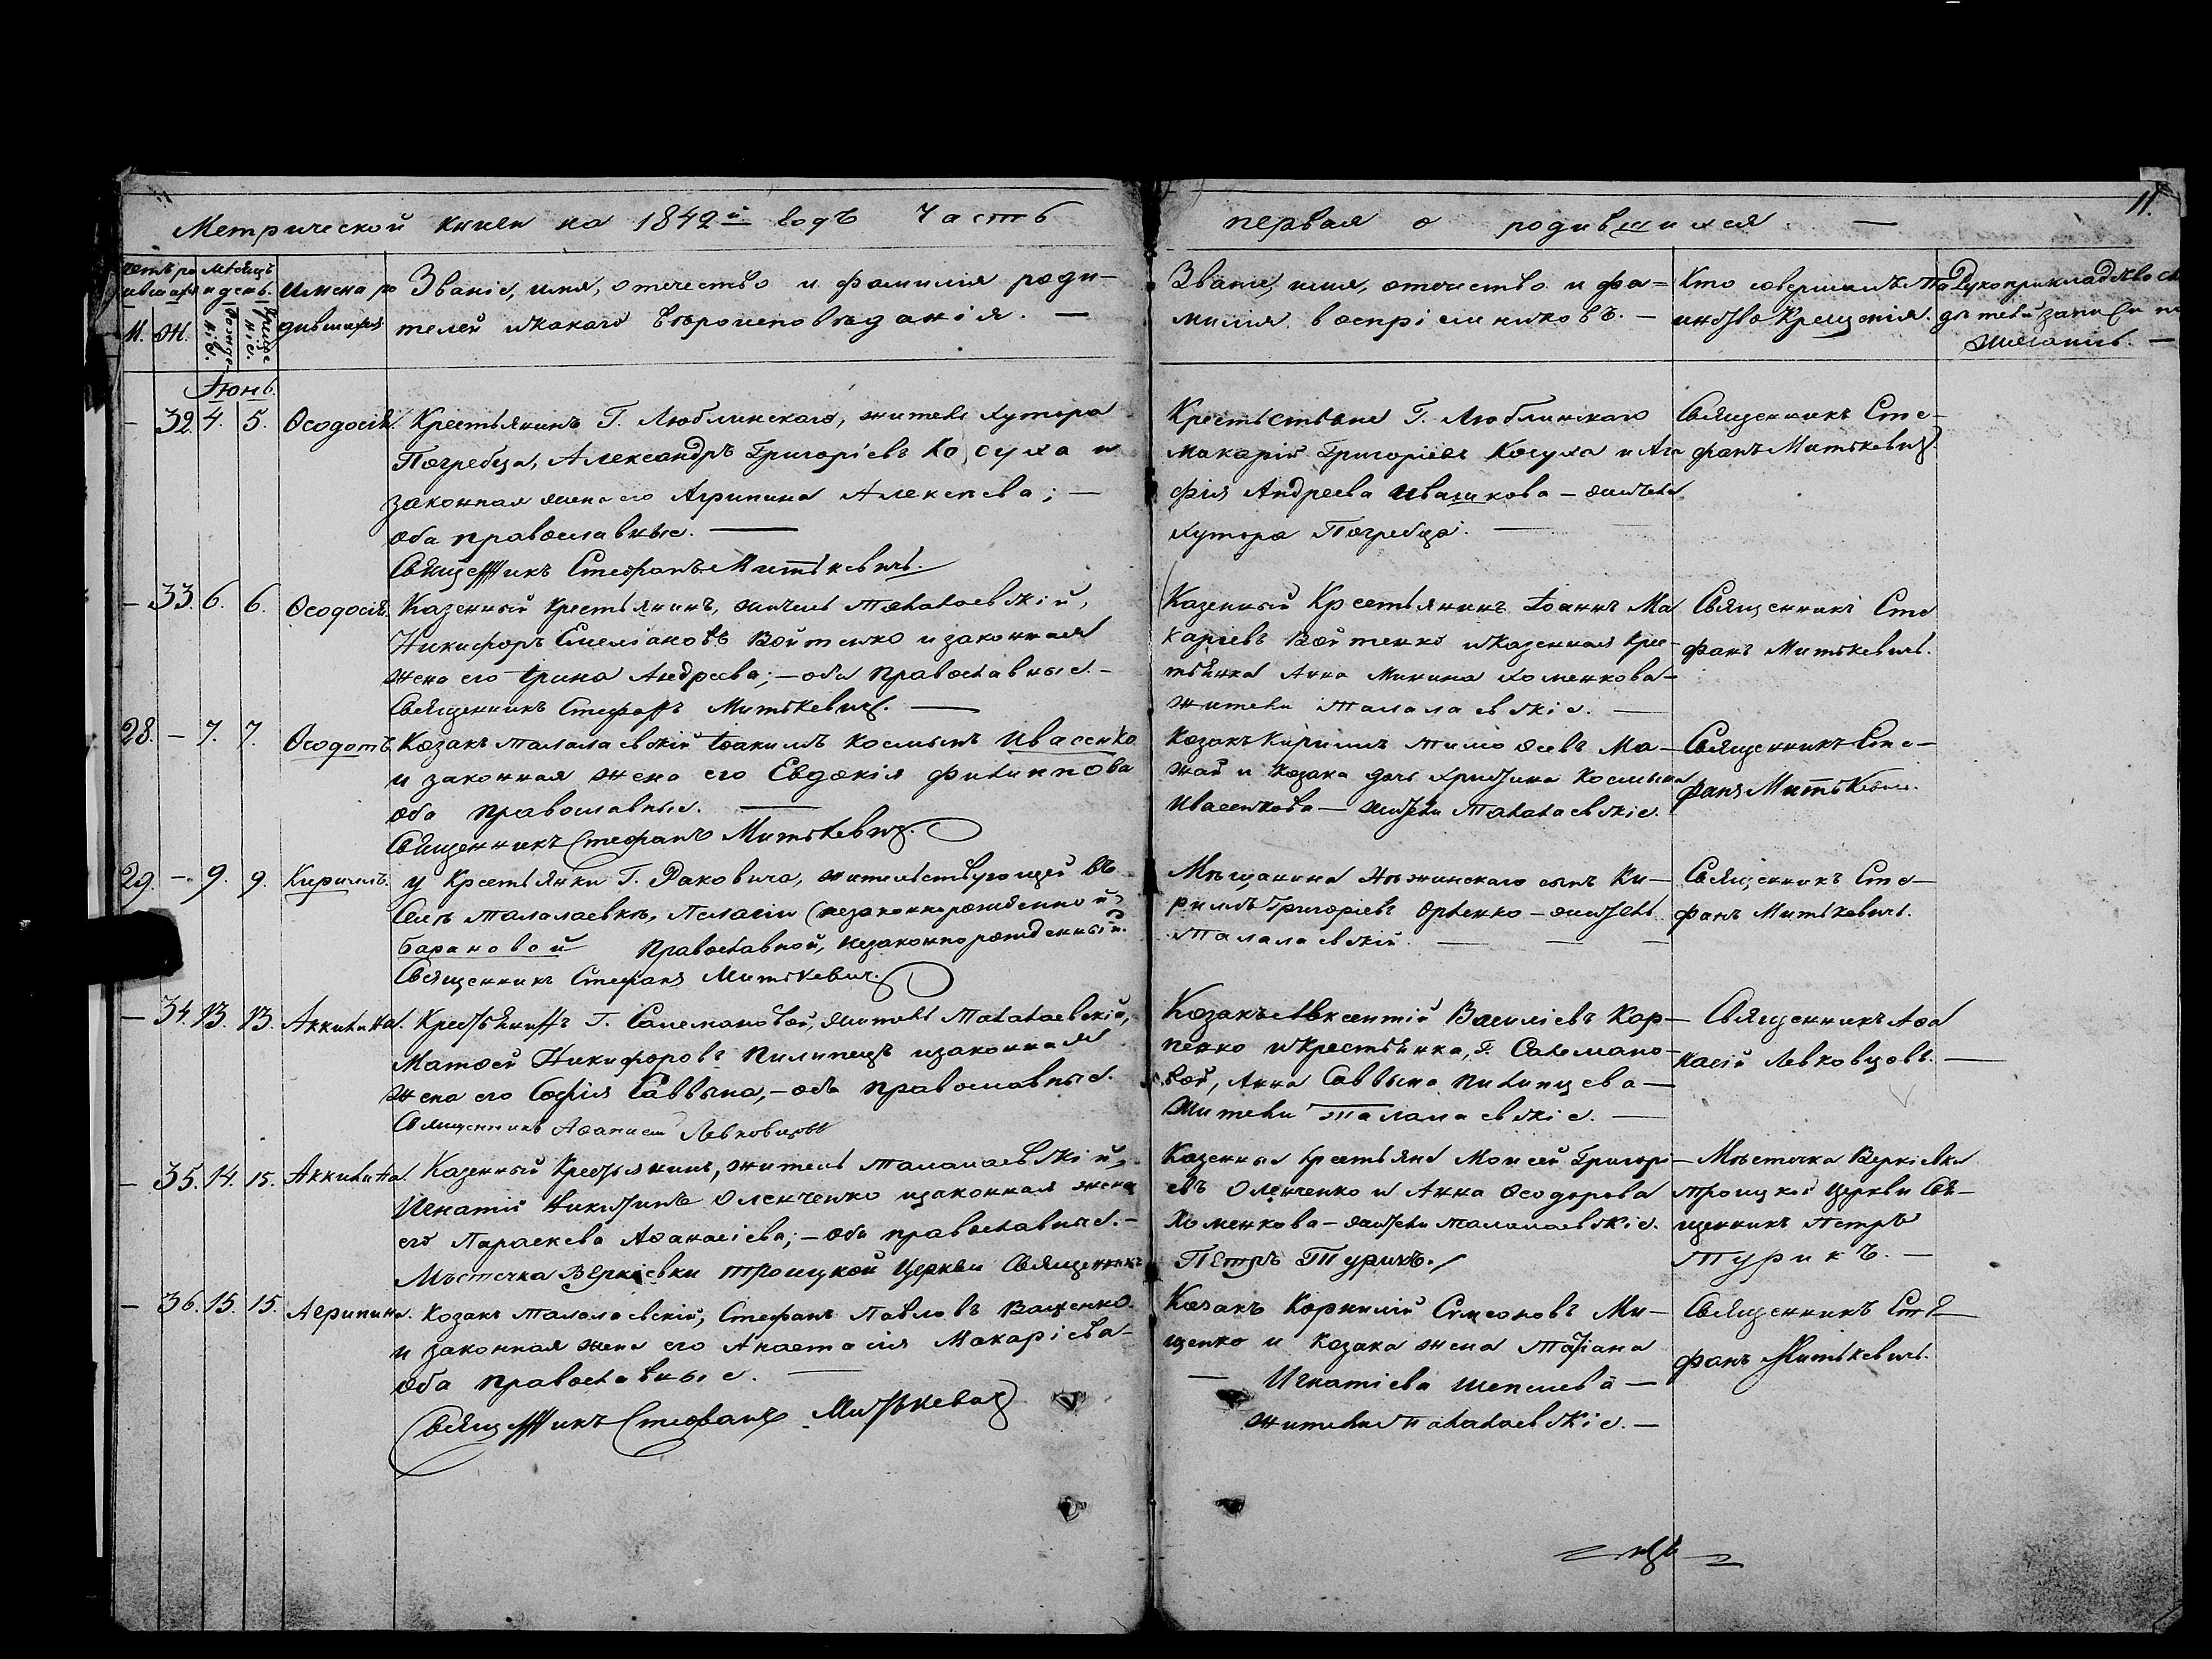 11.
Метрической книги на 1842й годъ Часть первая о родившихся —
Счетъ родившихся
Мѣсяцъ и день
М. Ж.
Рожденія. Крещенія.
Имена родившихся
Званіе, имя, отечество и фамилія роди-
телей и какаго вѣроисповѣданія. —
Званіе, имя, отечество и фа=
милія воспріемниковъ. —
Кто совершалъ та
инство Крещенія.
Рукоприкладство св
дѣтелей записи по
желанію. —
Іюнь.
— 32. 4. 5. Ѳеодосія. Крестьянинъ Г. Люблинскаго, житель хутора
Погребца, Александръ Григорьевъ Косуха и
законная жена его Агрипина Алексѣева; —
оба православные. —
Священникъ Стефанъ Митькевичъ.
Крестьстьяне Г. Люблинскаго
Макарій Григоріевъ Косуха и Ага
фія Андреева Ивашкова — жители
хутора Погребца. —
Священникъ Сте-
фанъ Митькевичъ.
— 33. 6. 6. Ѳеодосія. Казенный Крестьянинъ, житель Талалаевскій,
Никифоръ Емеліановъ Войтенко и законная
жена его Ірина Андреева; — оба православные. —
Священникъ Стефанъ Митькевичъ. —
Казенный Крестьянинъ Іоаннъ Ма
каріевъ Войтенко и казенная Крес-
тьянка Анна Минина Хоменкова —
жители Талалаевскіе. —
Священникъ Сте
фанъ Митькевичъ.
28. — 7. 7. Ѳеодотъ. Козакъ Талалаевскій Іоакимъ Космынъ Ивасенко
и законная жена его Евдокія Филиппова
оба православные. —
Священникъ Стефанъ Митькевичъ.
Козакъ Кириллъ Тимоѳеевъ Ма-
жай и козака дочь Христина Космына
Ивасенкова — жители Талалаевскіе.
Священникъ Сте-
фанъ Митькевичъ.
29. — 9. 9. Кириллъ. У Крестьянки Г. Раковича, жительствующей въ
Селѣ Талалаевкѣ, Пелагіи (незаконнорожденной)
Барановой Православной, незаконнорожденный.
Священникъ Стефанъ Митькевичъ.
Мѣщанина Нѣжинскаго сынъ Ки-
риллъ Григоріевъ Орленко — житель
Талалаевскій. —
Священникъ Сте-
фанъ Митькевичъ.
— 34. 13. 13. Аккилина. Крестьянинъ Г. Салемановой, житель Талалаевскій,
Матѳей Никифоровъ Пилипецъ и законная
жена его Софія Саввына, — оба православные.
Священникъ Аѳанасій Левковцовъ
Козакъ Авксентій Василіевъ Кар-
пенко и крестьянка, Г. Салемано-
вой, Анна Саввына Пилипцева —
Жители Талалаевскіе. —
Священникъ Аѳа
насій Левковцовъ. —
— 35. 14. 15. Аккилина. Казенный Крестьянинъ, житель Талалаевскій,
Игнатій Никитинъ Оленченко и законная жена
его Параскева Аѳанасіева; — оба православные. —
Мѣстечка Веркіевки Троицкой Церкви Священникъ
Петръ Турикъ.
Казенные Крестьяне Моисей Григорі-
евъ Оленченко и Анна Ѳеодорова
Хоменкова — жители Талалаевскіе.
Мѣстечка Веркіевки
Троицкой Церкви Свя-
щенникъ Петръ
Турикъ. —
— 36. 15. 15. Агрипина. Козакъ Талалаевскій, Стефанъ Павловъ Ващенко
и законная жена его Анастасія Макаріева —
оба православные. —
Священникъ Стефанъ Митькевичъ
Козакъ Корнилій Симеоновъ Ми-
щенко и козака жена Татіана
— Игнатіева Шепелева —
жители Талалаевскіе. —
Священникъ Сте-
фанъ Митькевичъ.